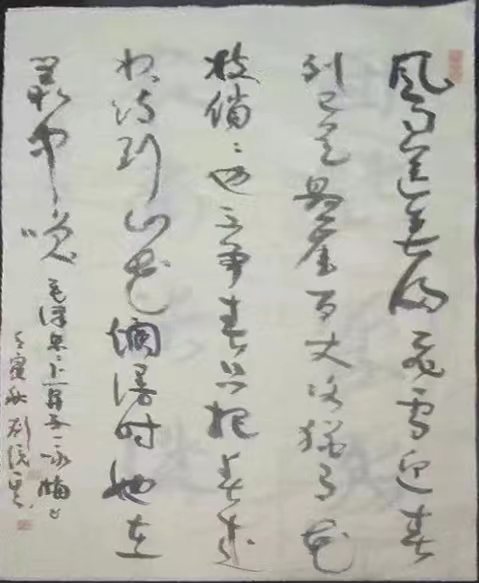 風雨送春归飛雪迎春
到已是悬崖百丈冰猶有花
枝俏〻也不争春只把春来
报待到山花爛漫时她在
叢中咲 毛泽东卜算子咏梅
壬寅秋 刘